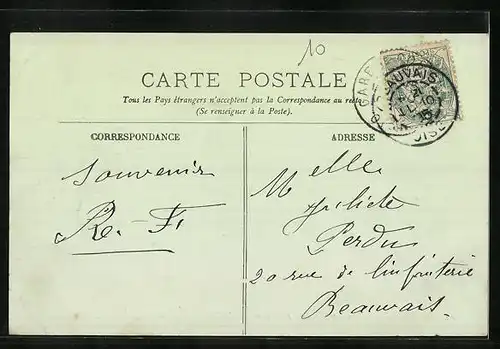 10
CARTE POSTALE
Tous les Pays étrangers n'acceptent pas la Correspondance au recto
(Se renseigner à la Poste).
GARE BEAUVAIS
OISE
CORRESPONDANCE
ADRESSE
Souvenir
R.-F.
Melle
Juliette
Perdu
20 rue de l'infanterie
Beauvais.